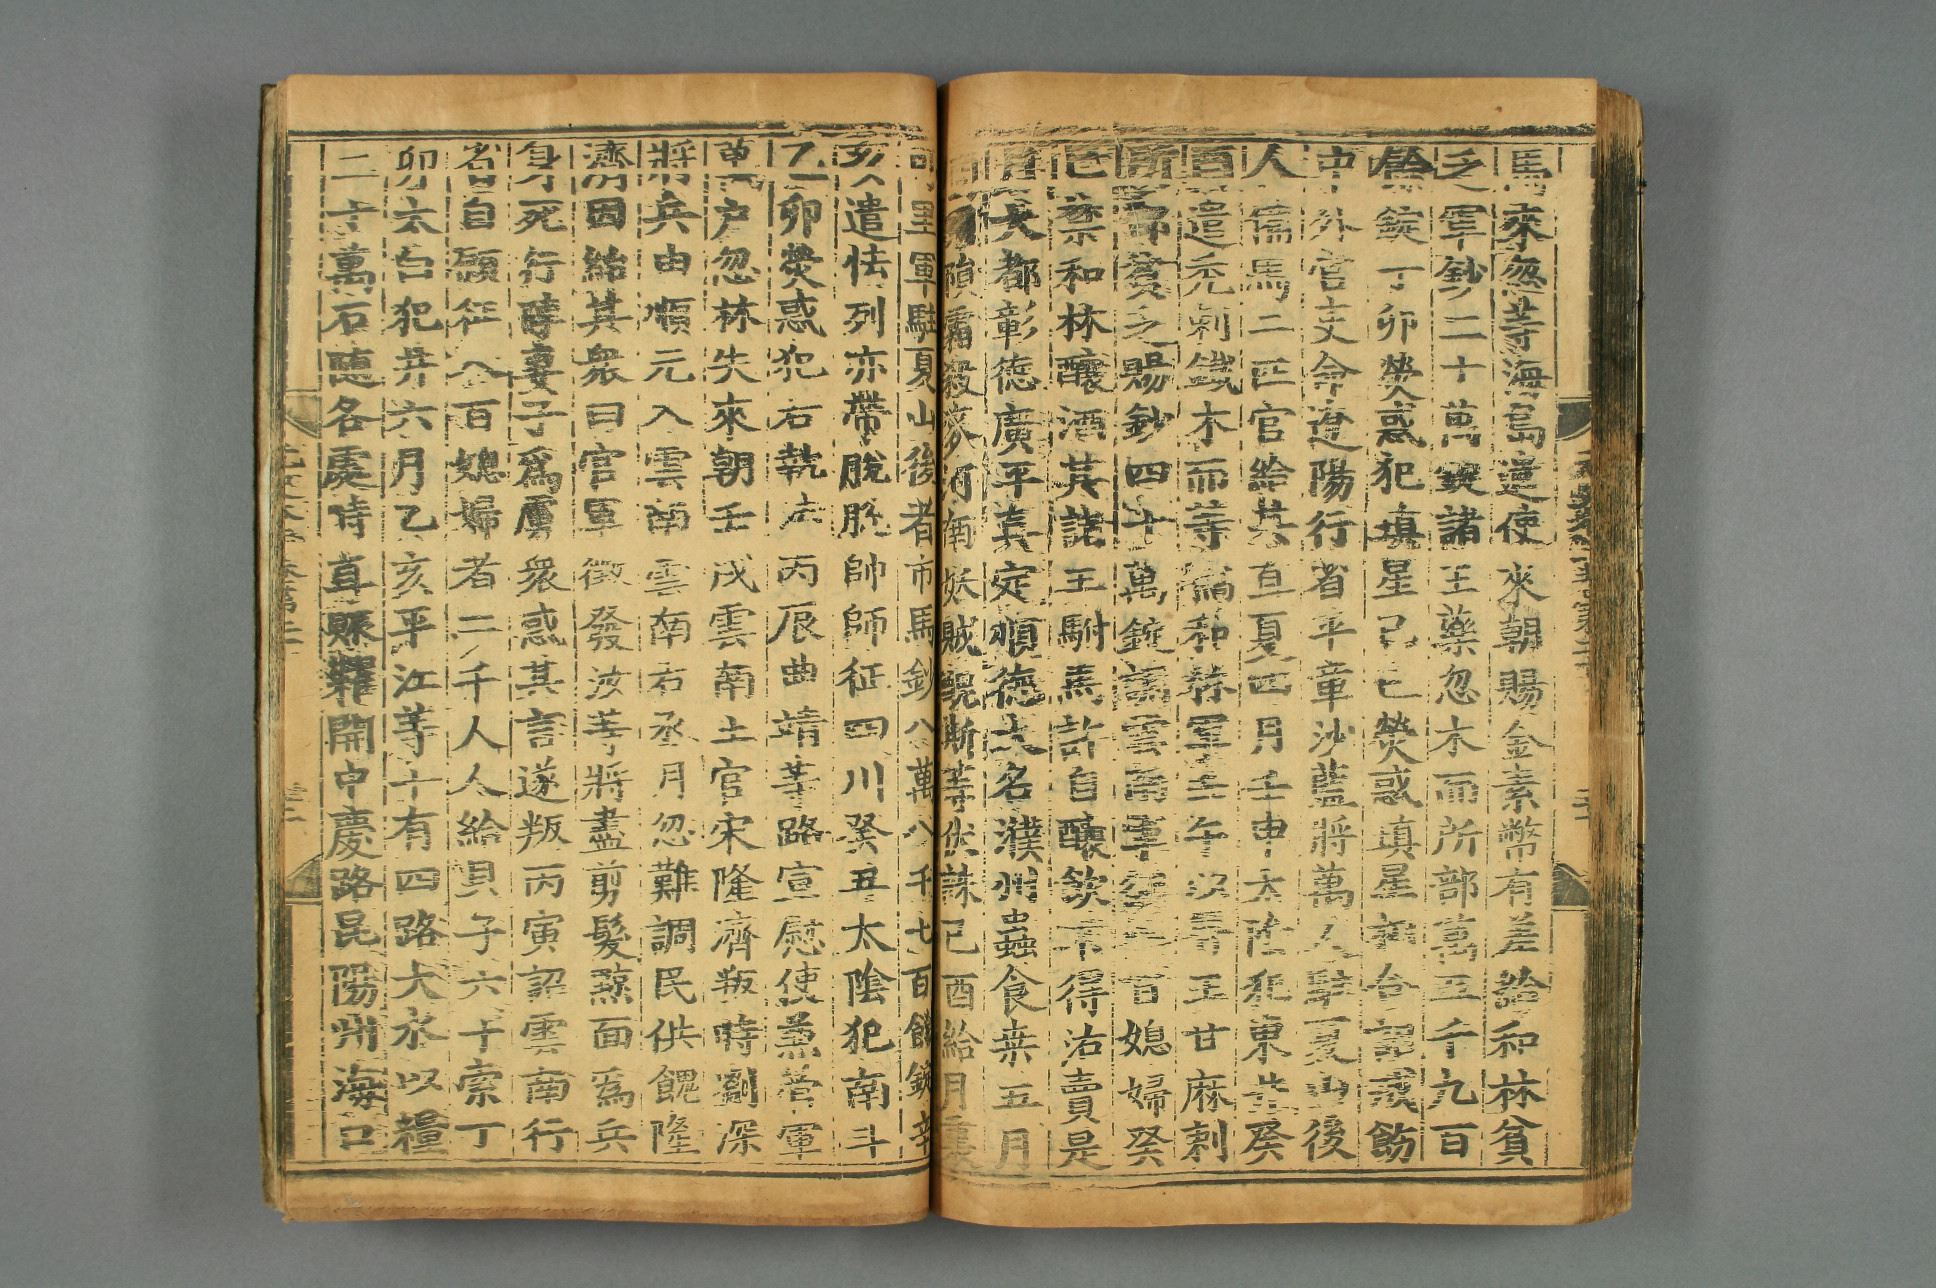 馬來忽等海島遣使來朝賜金素幣有差給和林貧
乏軍鈔二十萬錠諸王藥忽木而所部萬五千九百
餘錠丁卯熒惑犯填星己巳熒惑填星相合詔戒飭
中外官吏命遼陽行省平章沙藍將萬人駐夏山後
人備馬二匹官給其直夏四月壬申太陰犯東井癸
酉遣禿剌鐵木而等犒和林軍壬午以晉王甘麻剌
所部貧乏賜鈔四十萬錠調雲南軍征八百媳婦癸
巳禁和林釀酒其諸王駙馬許自釀飲不得沽賣是
月大都彰德廣平真定順德大名濮州蟲食桑五月
隕霜殺麥河南妖賊醜斯等伏誅己酉給月裏
可里軍駐夏山後者市馬鈔八萬八千七百餘錠辛
亥遣怯列亦帶脫脫帥師征四川癸丑太陰犯南斗
乙卯熒惑犯右執法丙辰曲靖等路宣慰使兼管軍
萬戶忽林失來朝壬戌雲南土官宋隆濟叛時劉深
將兵由順元入雲南雲南右丞月忽難調民供餽隆
濟因紿其衆曰官軍徵發汝等將盡剪髮黥面爲兵
身死行陣妻子爲虜衆惑其言遂叛丙寅詔雲南行
省自願征八百媳婦者二千人人給貝子六十索丁
卯太白犯井六月乙亥平江等十有四路大水以糧
二十萬石隨各處時直賑糶開中慶路昆陽州海口